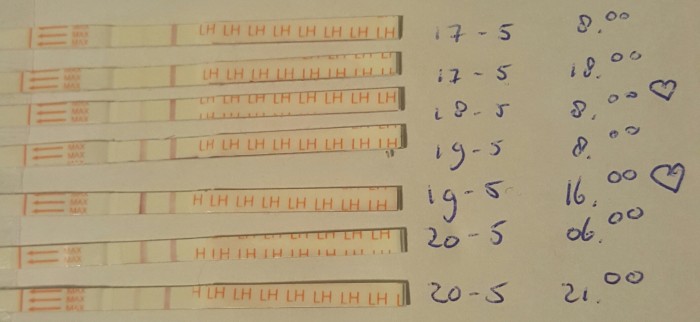 MAX MAX MAX LH LH LH LH LH LH LH LH 17-5 8.00
MAX MAX MAX LH LH LH LH LH LH LH LH 17-5 18.00
MAX MAX MAX LH LH LH LH LH LH LH LH 18-5 8.00
MAX MAX LH LH LH LH LH LH LH LH 19-5 8.00
MAX MAX MAX H LH LH LH LH LH LH LH 19-5 16.00
MAX MAX MAX LH LH LH LH LH 20-5 06.00
MAX MAX MAX H LH LH LH LH LH LH LH 20-5 21.00